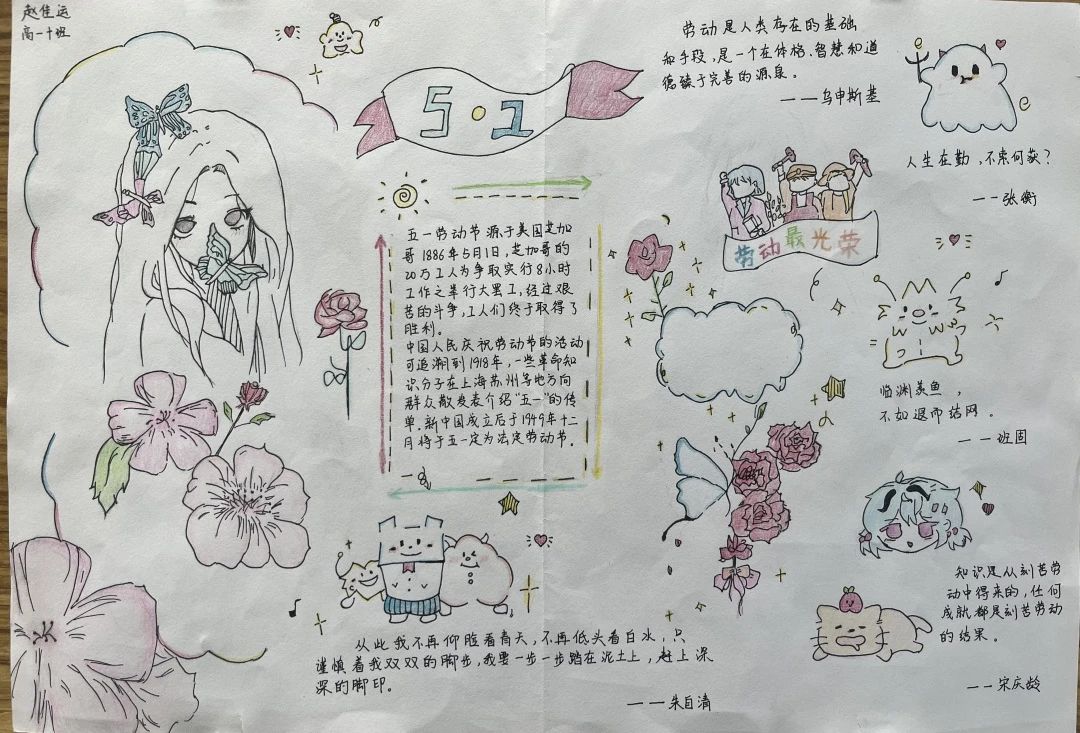 赵佳运
高一十班
5·1
劳动是人类存在的基础
和手段,是一个在体格、智慧和道
德臻于完善的源泉。
——乌申斯基
人生在勤,不索何获?
——张衡
劳动最光荣
五一劳动节源于美国芝加
哥1886年5月1日,芝加哥的
20万工人为争取实行8小时
工作之举行大罢工,经过艰
苦的斗争,工人们终于取得了
胜利。
中国人民庆祝劳动节的活动
可追溯到1918年,一些革命知
识分子在上海苏州等地方向
群众散发表介绍“五一”的传
单.新中国成立后于1949年十二
月将于五一定为法定劳动节.
临渊羡鱼,
不如退而结网。
——班固
知识是从刻苦劳
动中得来的,任何
成就都是刻苦劳动
的结果。
——宋庆龄
从此我不再仰脸看青天,不再低头看白水,只
谨慎着我双双的脚步,我要一步一步踏在泥土上,赶上深
深的脚印。
——朱自清